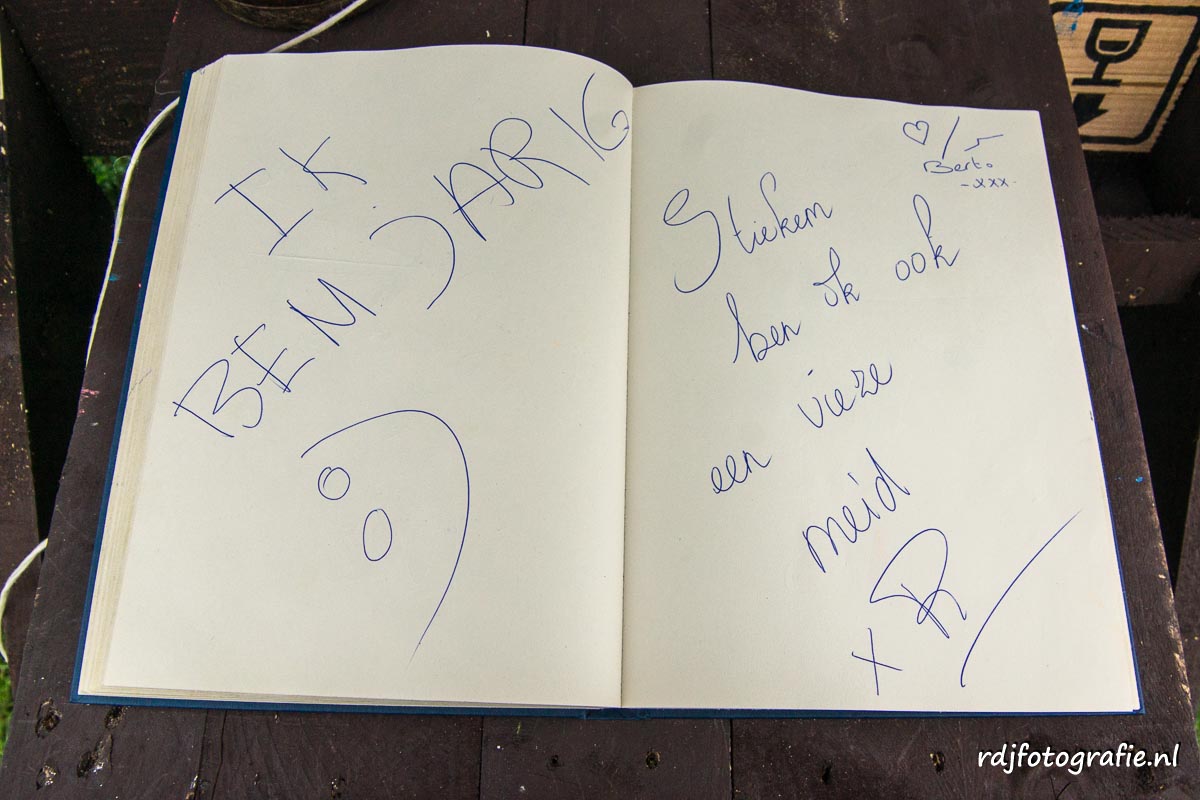 IK
BEM JARIG
♡/
Bert.
-xxx-
Stiekem
ben ik ook
een vieze
meid
x R
rdjfotografie.nl